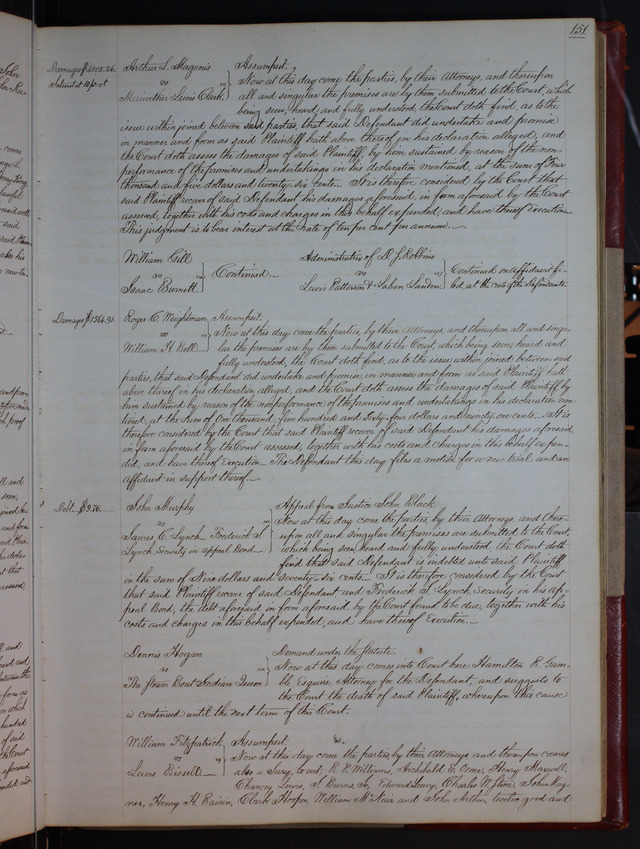 151
Damages $4005.26.
Interest at 10 pr ct
Arthur L. Magenis
vs
Meriwether Lewis Clark.
Assumpsit.
Now at this day come the parties, by their Attorneys, and thereupon
all and singular the premises are by them submitted to the Court, which
being seen, heard and fully understood, the Court doth find, as to the
issue within joined between said parties, that said Defendant did undertake and promise
in manner and form as said Plaintiff hath above thereof in his declaration alleged, and
the Court doth assess the damages of said Plaintiff, by him sustained by reason of the non-
performance of the promises and undertakings in his declaration mentioned, at the sum of Four
thousand and five dollars and twenty-six cents. It is therefore considered by the Court that
said Plaintiff recover of said Defendant his damages aforesaid, in form aforesaid by the Court
assessed, together with his costs and charges in this behalf expended, and have thereof Execution.
This judgment is to bear interest at the rate of ten per cent per annum.
William Gill
vs
Isaac Burnett.
Continued.
Administratrix of D. J. Robbins
vs
Lewis Patterson & Labon
Continued on affidavit fi-
led, at the cost of the Defendants.
Damages $1564.91.
Roger C. Weightman
vs
William H. Bell.
Assumpsit.
Now at this day come the parties, by their Attorneys, and thereupon all and singu-
lar the premises are by them submitted to the Court, which being seen, heard and
fully understood, the Court doth find, as to the issue within joined between said
parties, that said Defendant did undertake and promise, in manner and form as said Plaintiff hath
above thereof in his declaration alleged, and the Court doth assess the damages of said Plaintiff by
him sustained by reason of the nonperformance of the promises and undertakings in his declaration men-
tioned, at the sum of One thousand, five hundred and Sixty-four dollars and ninety one cents. It is
therefore considered by the Court that said Plaintiff recover of said Defendant his damages aforesaid
in form aforesaid by the Court assessed, together with his costs and charges in this behalf expen-
ded, and have thereof Execution. The Defendant this day files a motion for a new trial and an
affidavit in support thereof.
Debt $9.76.
John Murphy
vs
James C. Lynch Frederick S.
Lynch Security in Appeal Bond.
Appeal from Justice John Black.
Now at this day come the parties, by their Attorneys, and there-
upon all and singular the premises are submitted to the Court,
which being seen, heard and fully understood, the Court doth
find that said Defendant is indebted unto said Plaintiff
in the sum of Nine dollars and Seventy-six cents. It is therefore considered by the Court
that said Plaintiff recover of said Defendant and Frederick S. Lynch, Security in his Ap-
peal Bond, the debt aforesaid in form aforesaid by the Court found to be due, together with his
costs and charges in this behalf expended, and have thereof Execution.
Dennis Hogan
vs
The Steam Boat Indian Queen
Demand under the Statute.
Now at this day comes into Court here Hamilton R. Gam-
ble Esquire, Attorney for the Defendant, and suggests to
the Court the death of said Plaintiff, whereupon this cause
is continued until the next term of this Court.
William Fitzpatrick,
vs
Lewis Bissell.
Assumpsit.
Now at this day come the parties by their Attorneys and thereupon comes
also a Jury, to wit, R. P. Williams, Archibald C. Henry Maxwell,
Chancey Lewis, Edward Charles W. John Wag-
ner, Henry H. Clark William McNair and John twelve good and